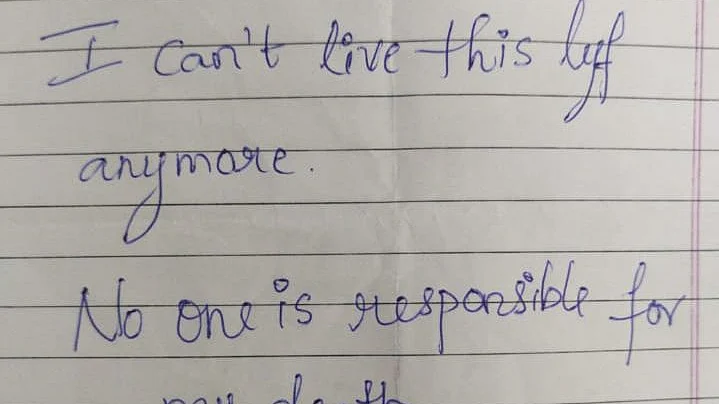 I can't live this lyf
anymore.
No one is responsible for
my death